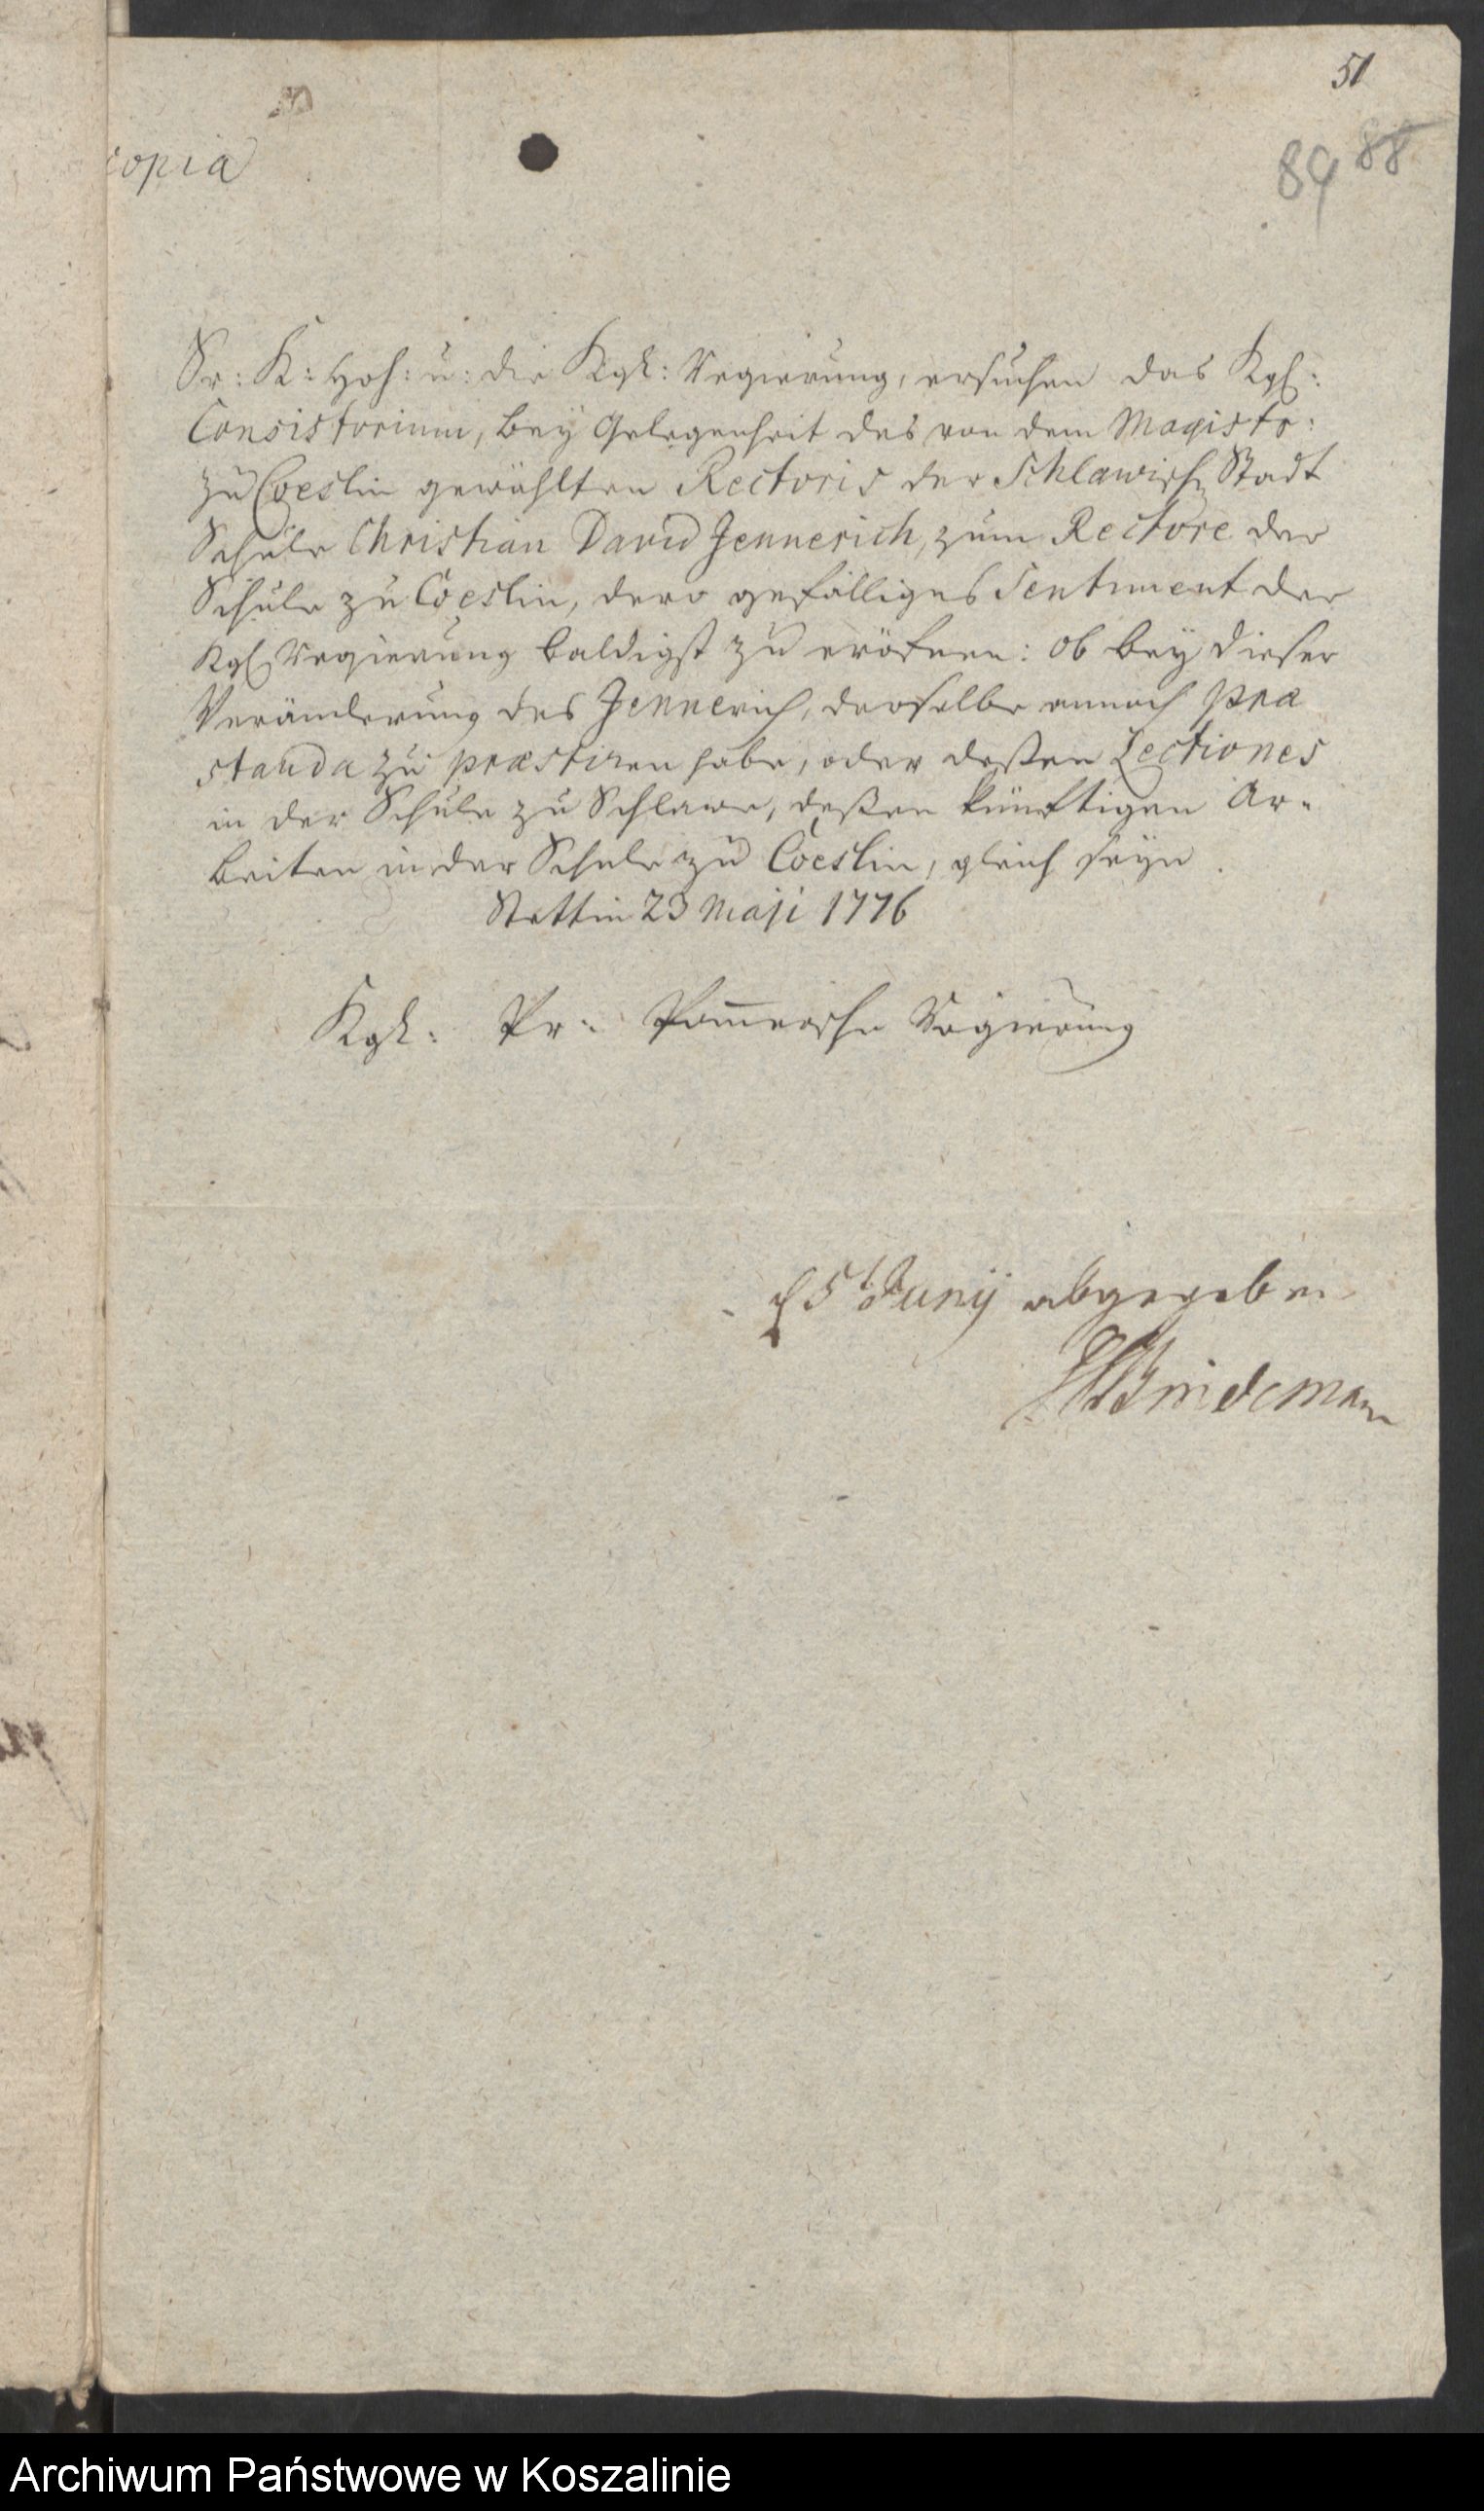 51
89 88
copia
Sr: K: Hoh: u: die Kgl: Regierung, ersuchen das Kgl:
Consistorium, bey Gelegenheit des von dem Magistr:
zu Coeslin gewählten Rectoris der Schlawisch Stadt
Schule Christian David Jennerich, zum Rectore der
Schule zu Coeslin, dero gefälliges Sentiment der
Kgl Regierung baldigst zu eröfnen: ob bey dieser
Veränderung des Jennerich, derselbe annoch præ
standa zu præstiren habe, oder deßen Lectiones
in der Schule zu Schlawe, deßen künftigen Ar-
beiten in der Schule zu Coeslin, gleich seyn.
Stettin 23 Maji 1776
Kgl: Pr: Pom̅ersche Regierung
d 5t Juny abgegeben
Archiwum Państwowe w Koszalinie